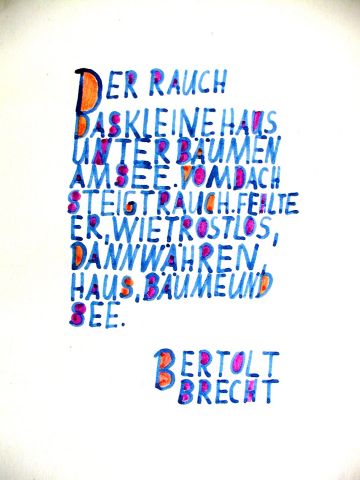 DER RAUCH
DAS KLEINE HAUS
UNTER BÄUMEN
AM SEE. VOM DACH
STEIGT RAUCH. FEHLTE
ER, WIE TROSTLOS,
DANN WÄHREN,
HAUS, BÄUME UND
SEE.
BERTOLT
BRECHT